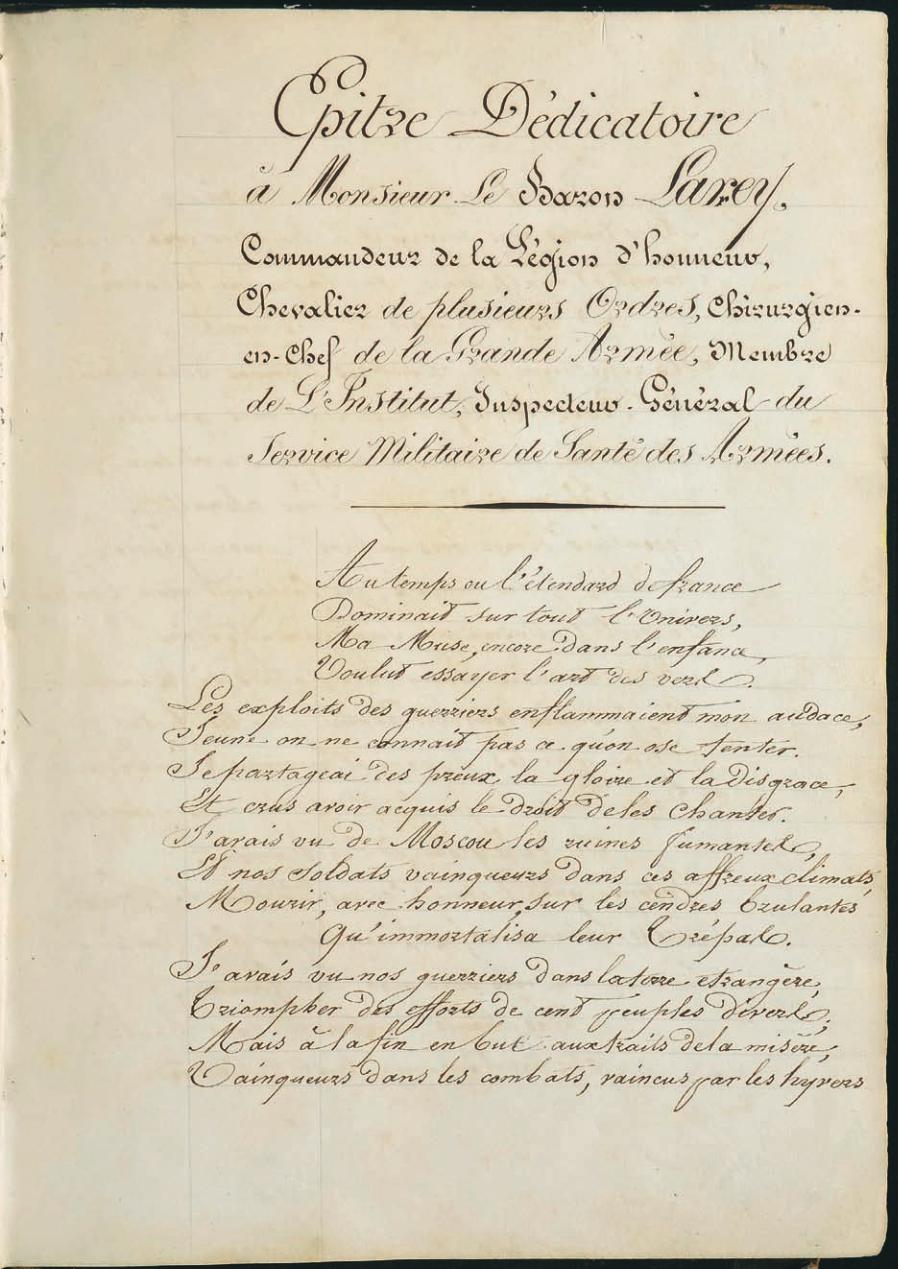 Epitre Dédicatoire
à Monsieur Le Baron Larey,
Commandeur de la Légion d'honneur,
Chevalier de plusieurs Ordres, Chirurgien-
en-Chef de la Grande Armée, Membre
de L'Institut, Inspecteur-Général du
Service Militaire de Santé des Armées.
Au temps ou l'étendard de france
Dominait sur tout l'Univers,
Ma Muse, encore dans l'enfance,
Voulut essayer l'art des vers.
Les exploits des guerriers enflammaient mon audace,
Jeune on ne connait pas ce qu'on ose tenter.
Je partageai des preux la gloire et la disgrace,
Et crus avoir acquis le droit de les chanter.
J'avais vu de Moscou les ruines fumantes,
Et nos soldats vainqueurs dans ces affreux climats,
Mourir, avec honneur, sur les cendres brulantes
Qu'immortalisa leur trépas.
J'avais vu nos guerriers dans la terre etrangère,
Triompher des efforts de cent peuples divers,
Mais à la fin en but aux traits de la misère,
Vainqueurs dans les combats, vaincus par les hyvers